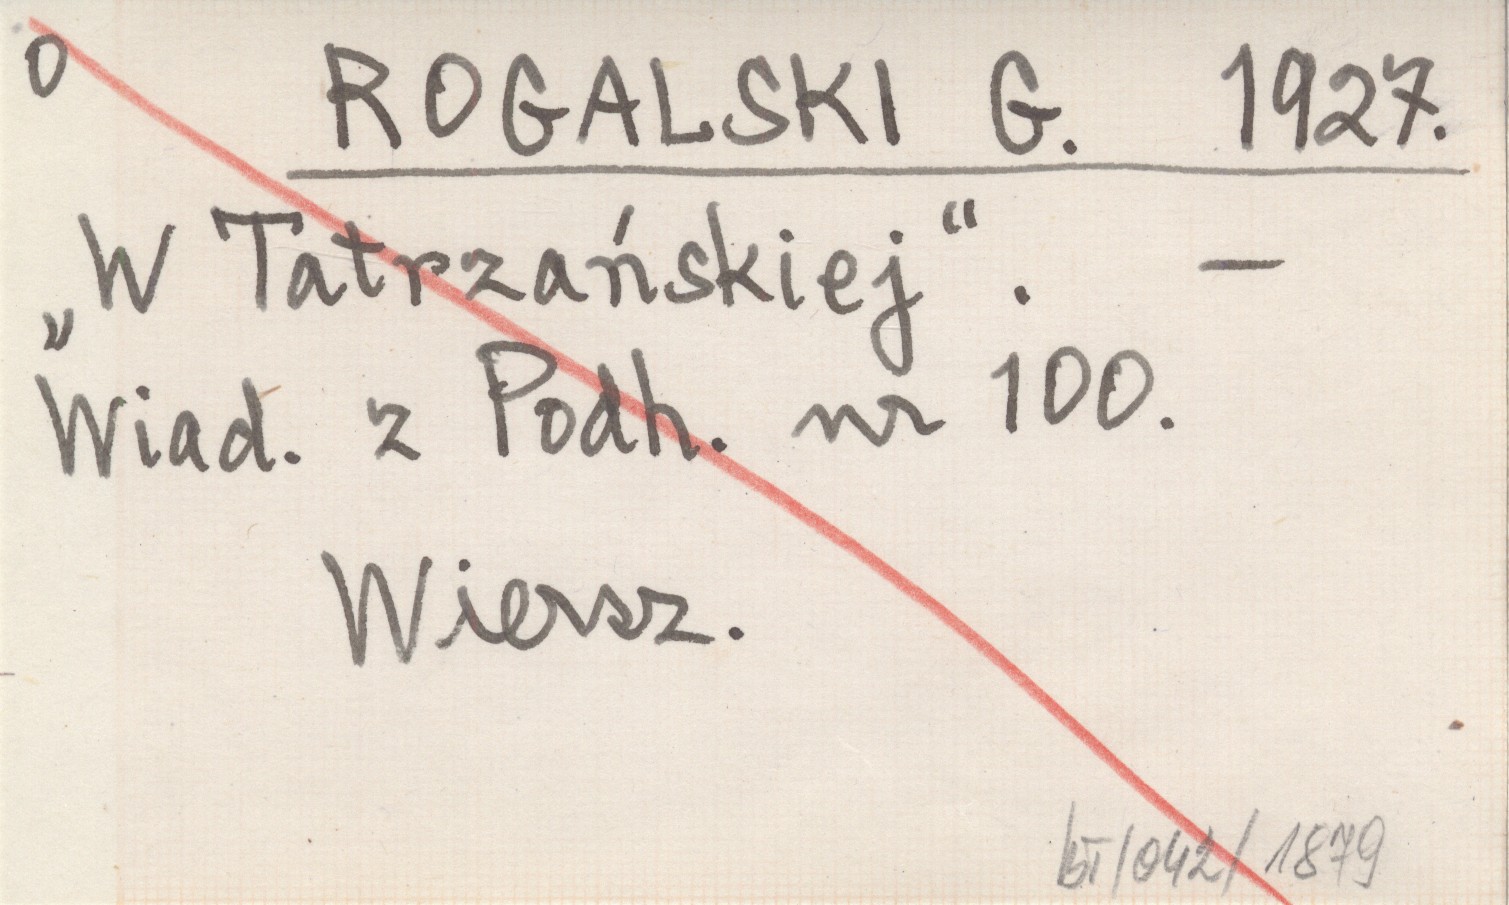 O
ROGALSKI G. 1927.
„W Tatrzańskiej“. —
„Wiad. z Podh. nr 100.
Wiersz.
bT/042/1879